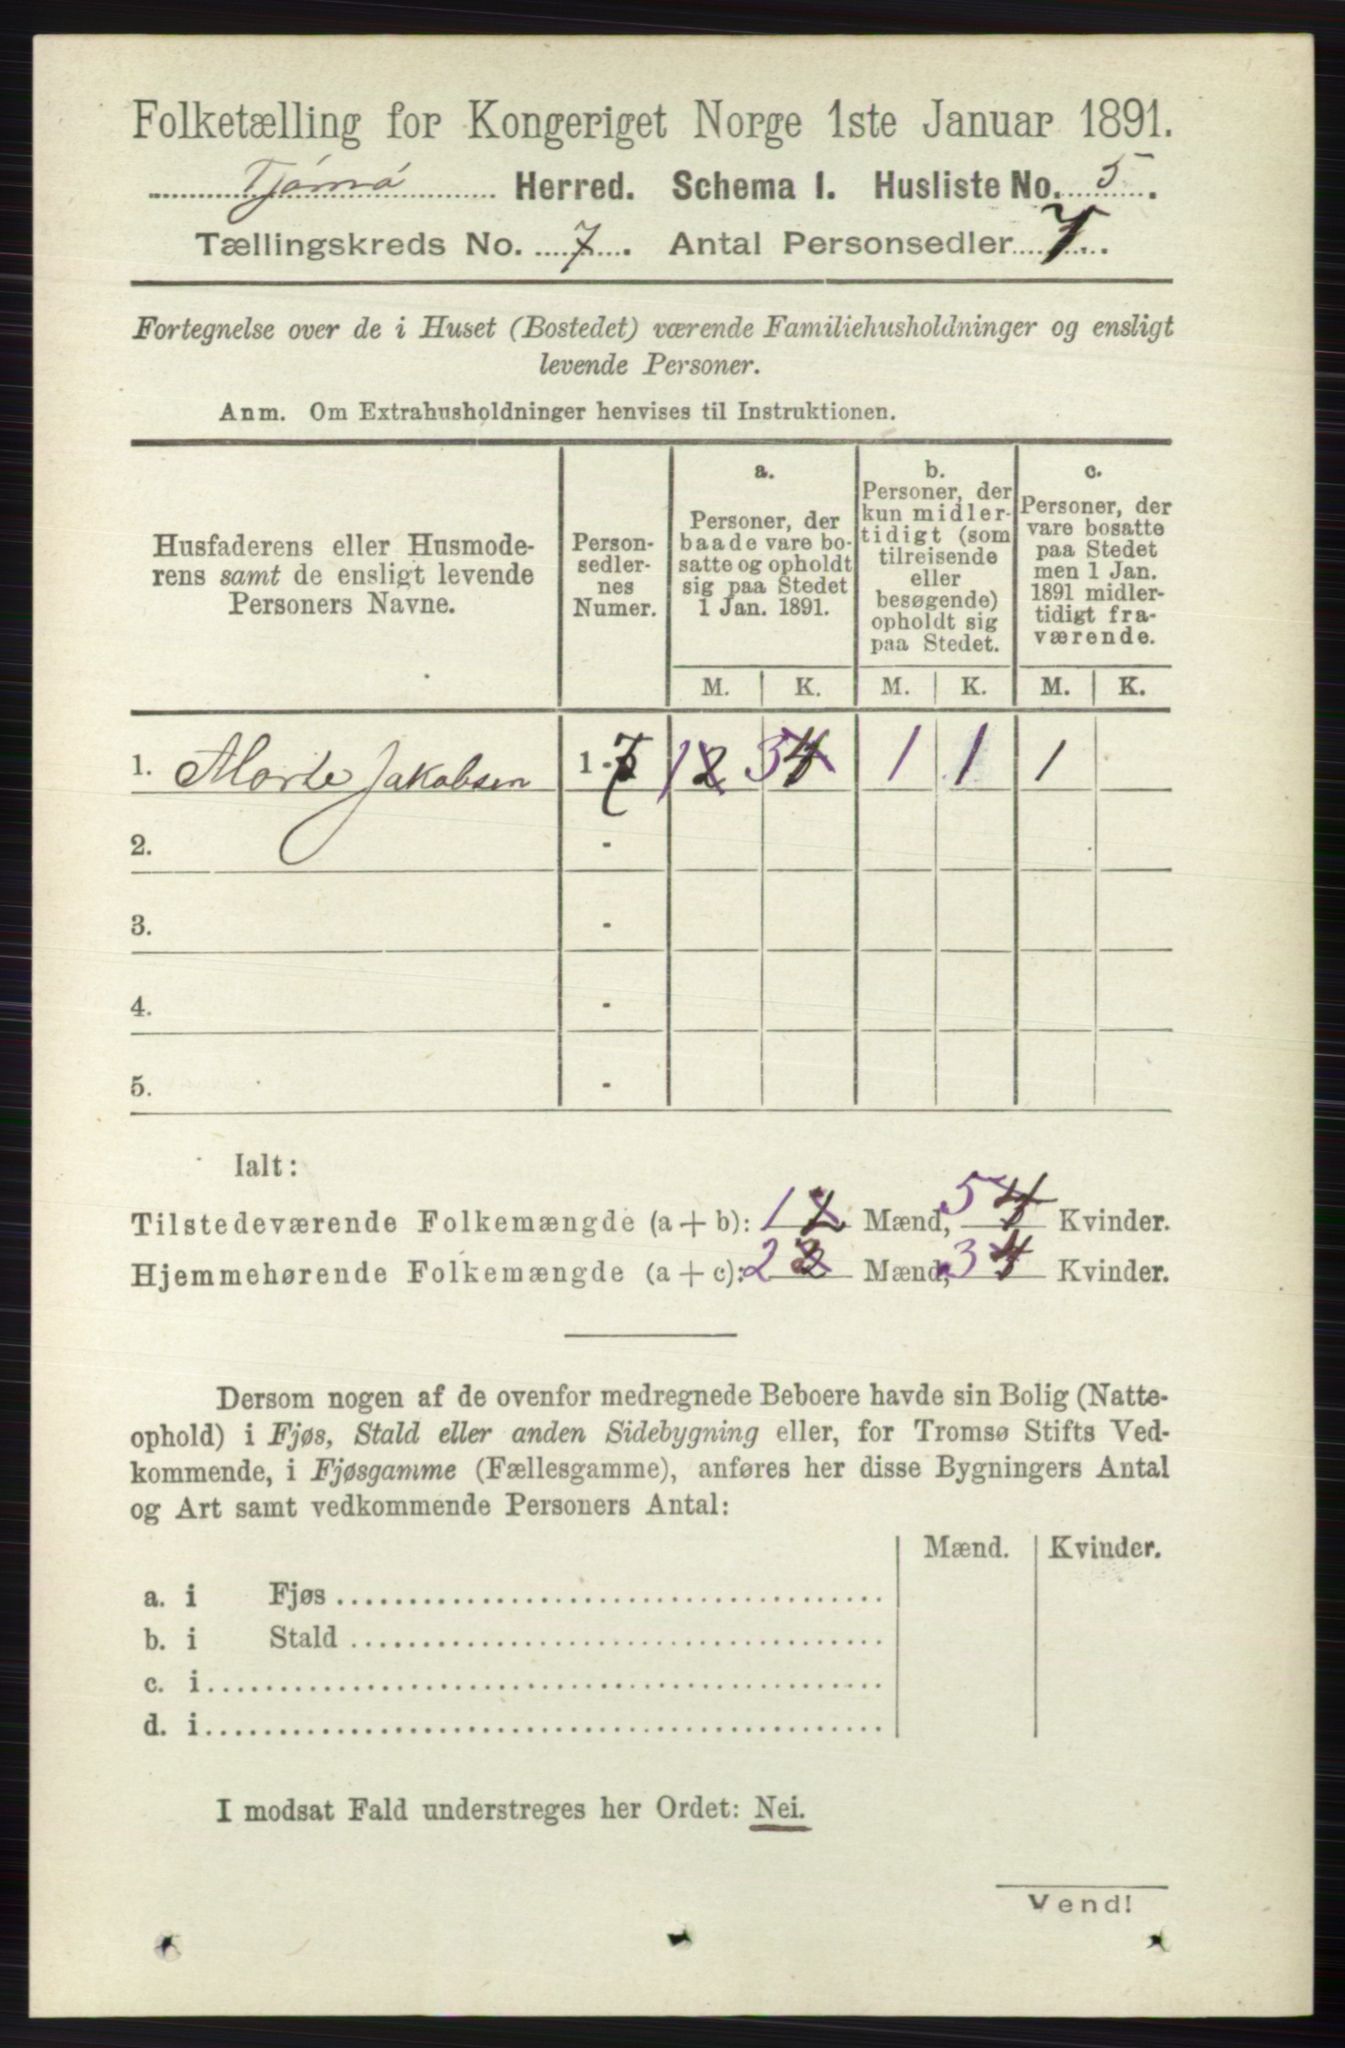 Folketælling for Kongeriget Norge 1ste Januar 1891.
Tjømø Herred. Schema 1. Husliste No. 5.
Tællingskreds No. 7. Antal Personsedler 7.
Fortegnelse over de i Huset (Bostedet) værende Familiehusholdninger og ensligt
levende Personer.
Anm. Om Extrahusholdninger henvises til Instruktionen.
Husfaderens eller Husmode-
rens samt de ensligt levende
Personers Navne.
Person-
sedler-
nes
Numer.
a.
Personer, der
baade vare bo-
satte og opholdt
sig paa Stedet
1 Jan. 1891.
b.
Personer, der
kun midler-
tidigt (som
tilreisende
eller
besøgende)
opholdt sig
paa Stedet.
c.
Personer, der
vare bosatte
paa Stedet
men 1 Jan.
1891 midler-
tidigt fra-
værende.
M. K. M. K. M. K.
1. Jakobsen 1 - 7 1 2 3 4 1 1 1
2. -
3. -
4. -
5. -
Ialt:
Tilstedeværende Folkemængde (a + b): 1 2 Mænd, 5 4 Kvinder.
Hjemmehørende Folkemængde (a + c): 2 2 Mænd, 3 4 Kvinder.
Dersom nogen af de ovenfor medregnede Beboere havde sin Bolig (Natte-
ophold) i Fjøs, Stald eller anden Sidebygning eller, for Tromsø Stifts Ved-
kommende, i Fjøsgamme (Fællesgamme), anføres her disse Bygningers Antal
og Art samt vedkommende Personers Antal:
Mænd. Kvinder.
a. i Fjøs
b. i Stald
c. i
d. i
I modsat Fald understreges her Ordet: Nei.
Vend!